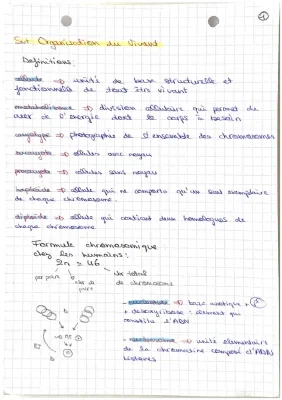 1
SVT Organisation du Vivant
Définitions :
cellule → unité de base structurelle et
fonctionnelle de tout être vivant
métabolisme → division cellulaire qui permet de
créer de l'énergie dont le corps à besoin
caryotype → photographie de l'ensemble des chromosomes
eucaryote → cellules avec noyau
procaryote → cellules sans noyau
haploïde → cellule qui ne comporte qu'un seul exemplaire
de chaque chromosome.
diploïde → cellule qui contient deux homologues de
chaque chromosome
Formule chromosomique
chez les humains :
2n = 46
par paire nbr total
nbr de de chromosomes
paire
- nucléotide → base azotique + P
+ désoxyribose : élément qui
constitue l'ADN
- nucléosome → unité élémentaire
de la chromatine composé d'ADN
histones